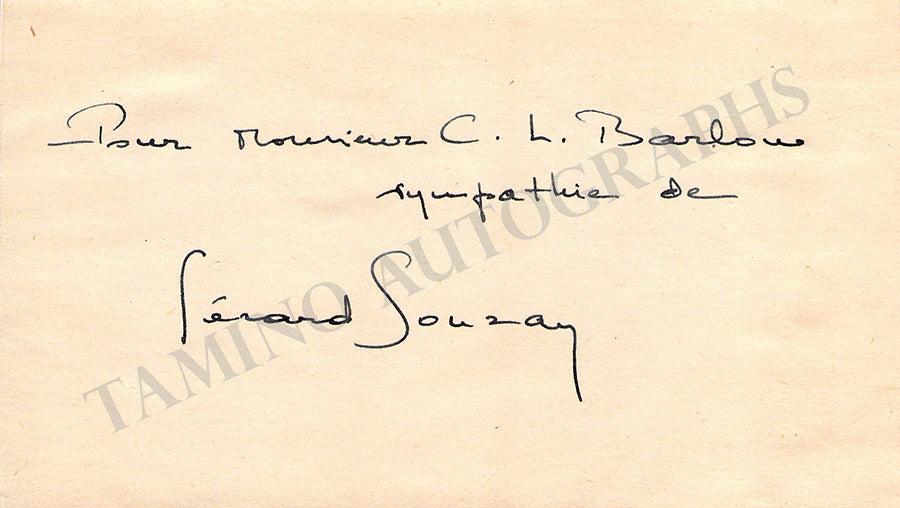 Pour Monsieur C. L. Barlow
sympathie de
Gérard Souzay
TAMINO AUTOGRAPHS